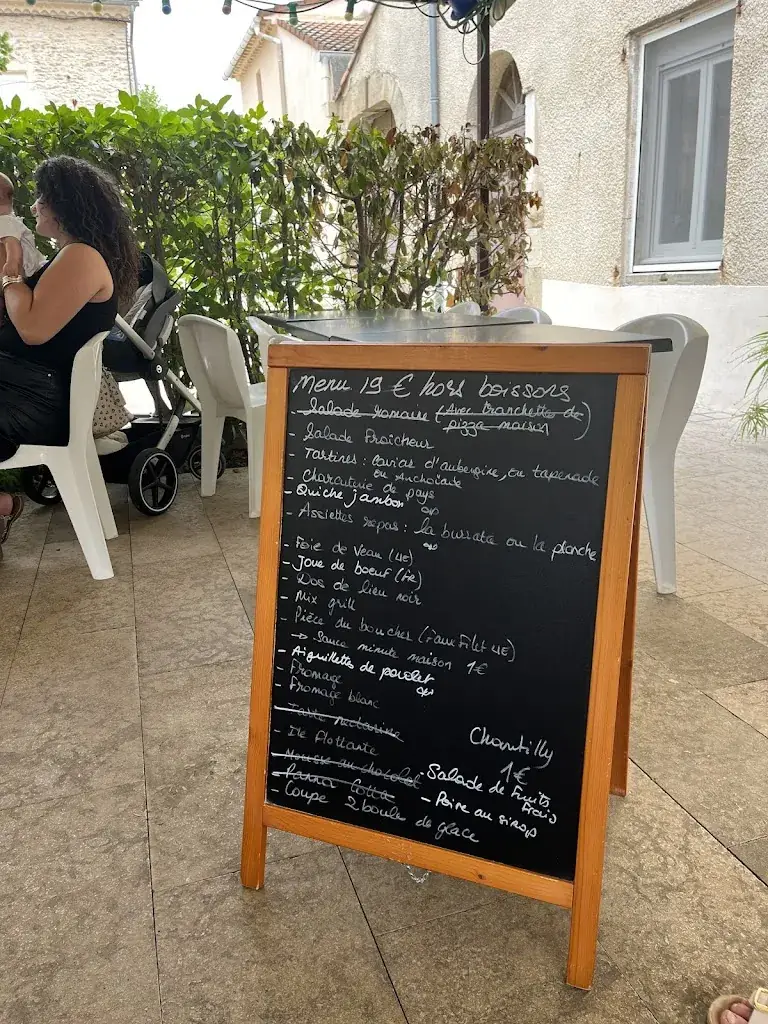 Menu 19 € hors boissons
- Salade romaine (Avec tranchette de pizza maison)
- Salade Fraîcheur
- Tartines : Caviar d'aubergine, ou tapenade
ou Anchoïade
- Charcuterie de pays
- Quiche jambon
- Assiettes repas : la burrata ou la planche
Foie de Veau (4€)
- Joue de boeuf (FR)
- Dos de lieu noir
- Mix grill
- Pièce du boucher (Faux Filet 4€)
→ Sauce minute maison 1€
- Aiguillettes de poulet
- Fromage
- Fromage blanc
- Tarte nectarine
- Ile flottante
- Mousse au chocolat
- Panna Cotta
- Coupe 2 boule de glace
Chantilly
1€
- Salade de Fruits
Frais
- Poire au sirop